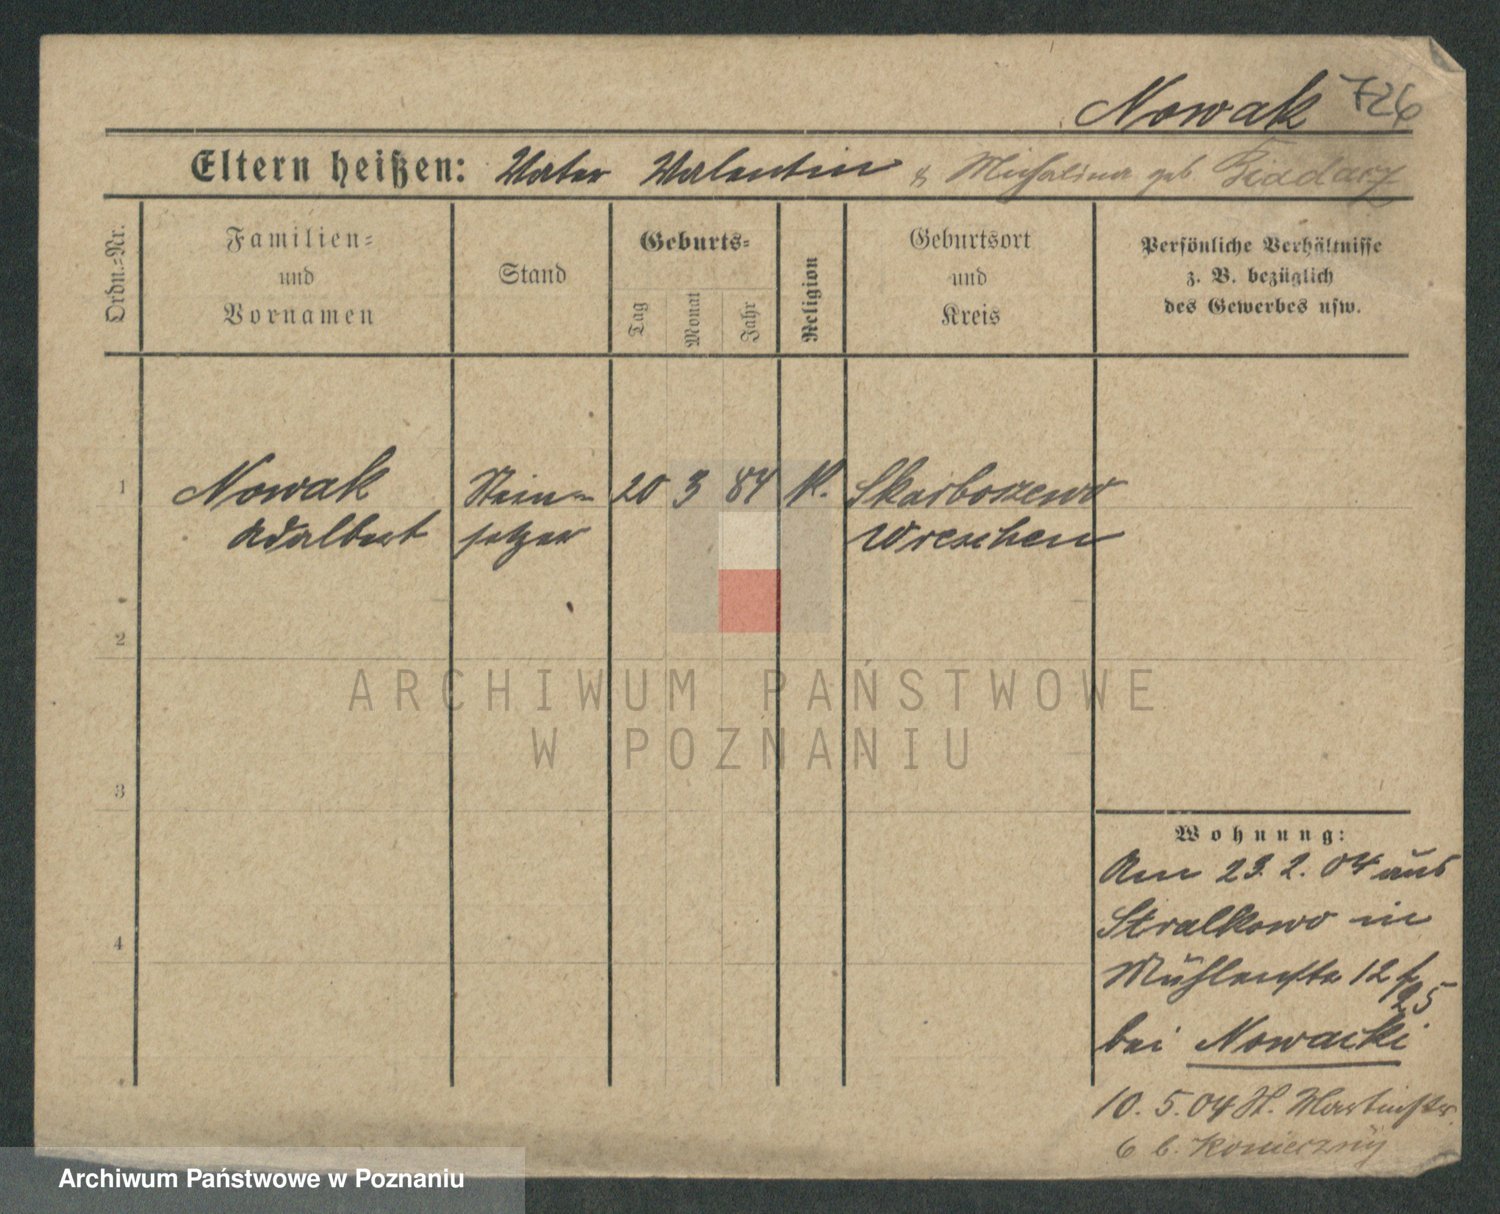 Nowak 726
Eltern heißen: Vater Valentin & Michalina geb
Ordn.=Nr.
Familien=
und
Vornamen
Stand
Geburts=
Tag
Monat
Jahr
Religion
Geburtsort
und
Kreis
Persönliche Verhältnisse
z. B. bezüglich
des Gewerbes usw.
1 Nowak Stein= 20 3 84 K. Skarboszewo
Adalbert setzer Wreschen
2
3
4
ARCHIWUM PAŃSTWOWE
W POZNANIU
Wohnung:
Am 23. 2. 04 aus
Stralkowo in
Mühlenstr 12
25
bei Nowacki
10. 5. 04 St. Martinstr.
6 b. Konieczny
Archiwum Państwowe w Poznaniu